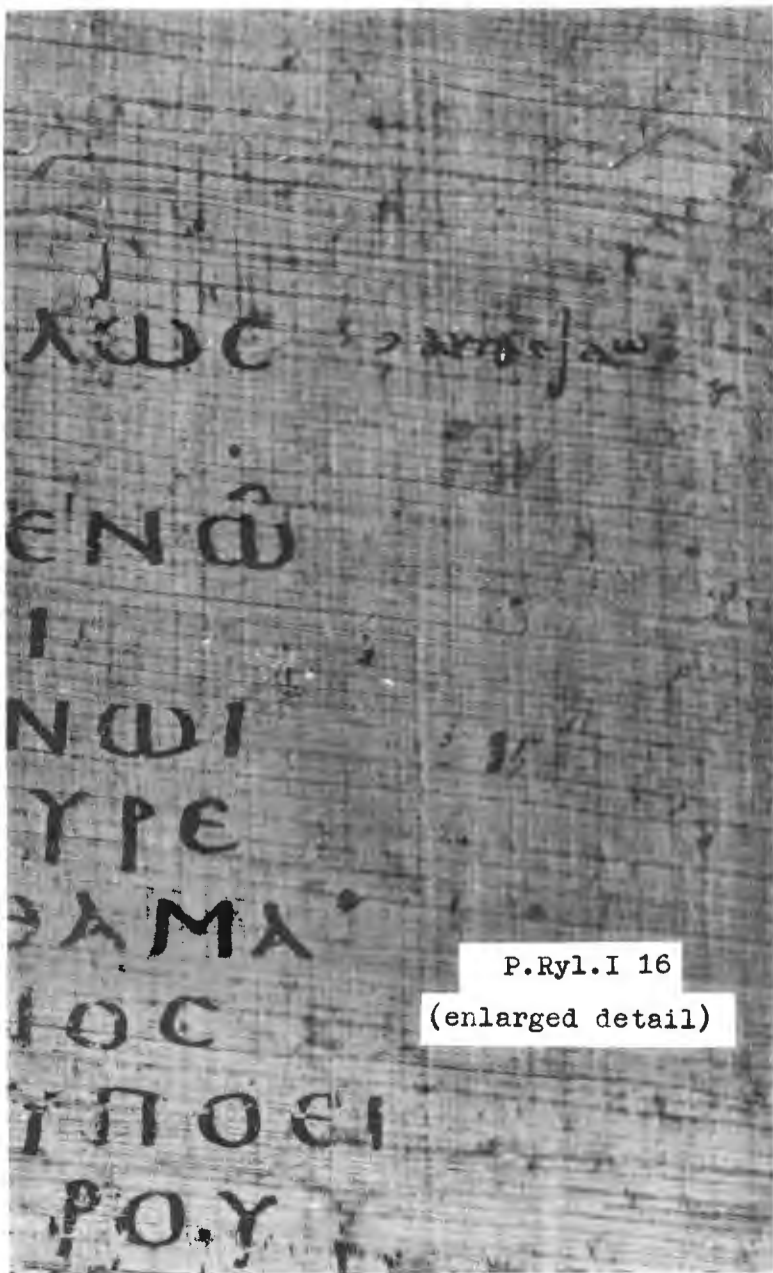 ΛΩϹ
ΕΝΩ̑
Ι
ΝΩΙ
ΥΡΕ
ΘΑΜΑ
ΙΟϹ
ΥΠΟΕΙ
ΡΟΥ
P.Ryl.I 16
(enlarged detail)